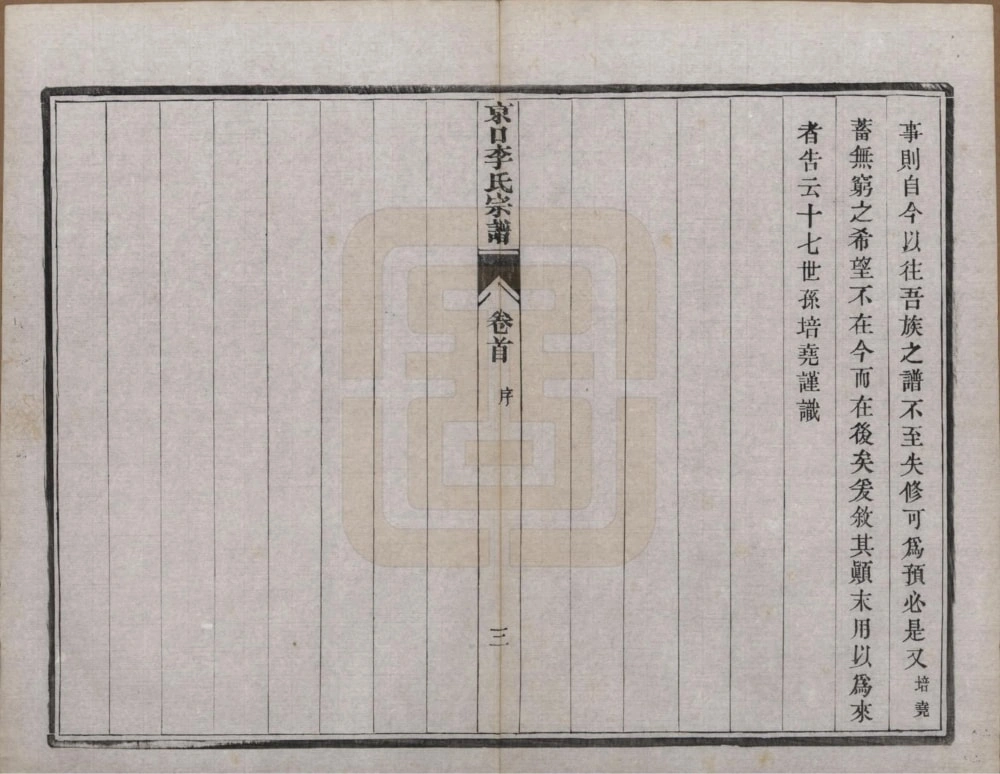 事則自今以往吾族之譜不至失修可爲預必是又培堯
蓄無窮之希望不在今而在後矣爰敘其顚末用以爲來
者告云十七世孫培堯謹識
京口李氏宗譜 卷首 序 三